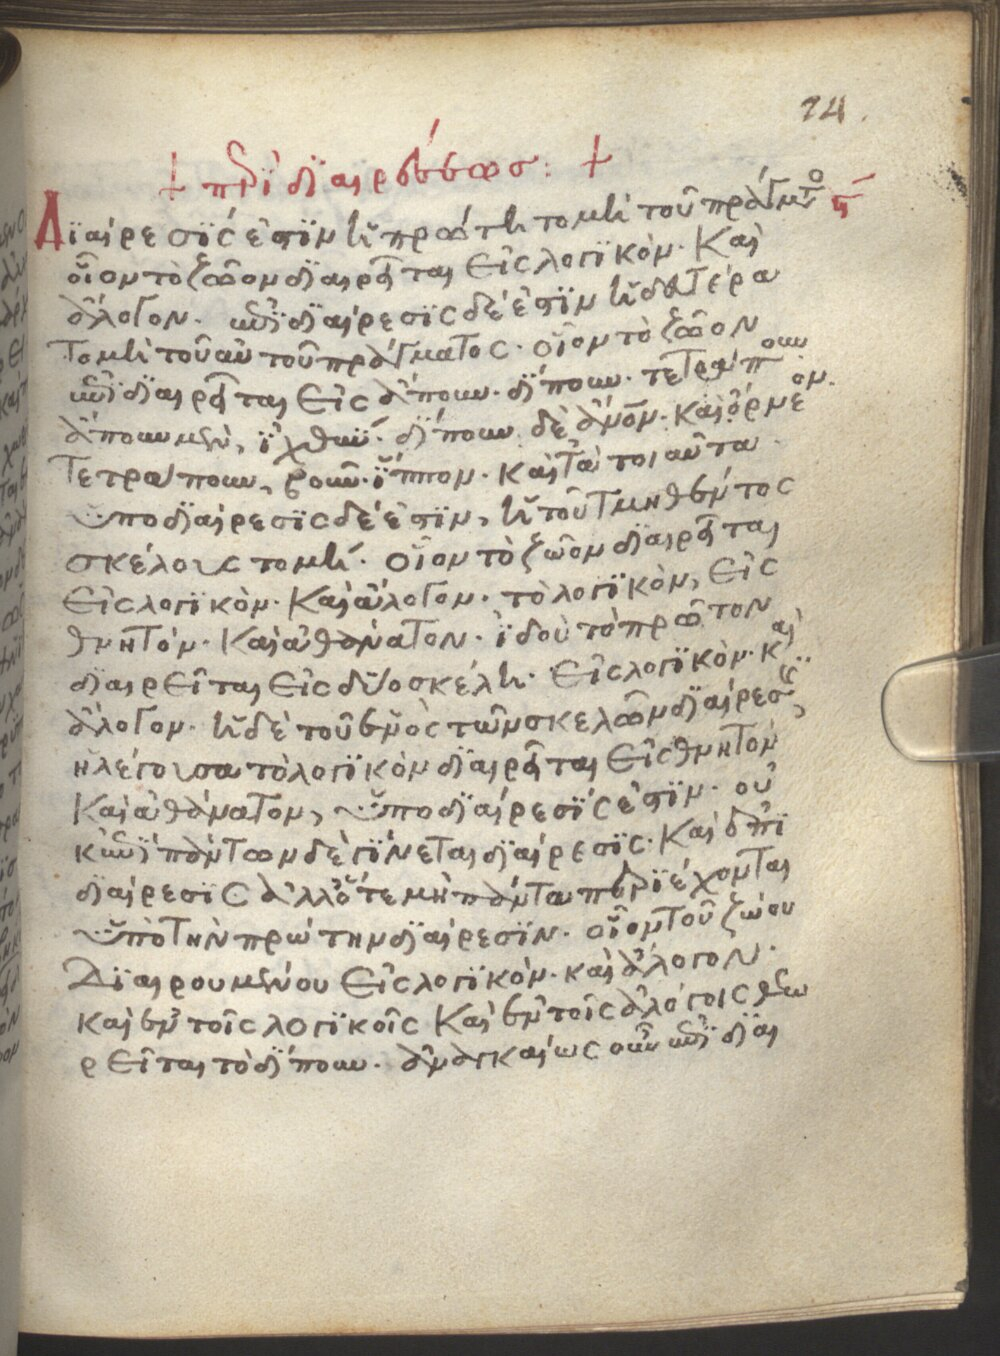 14.
+ περὶ διαιρέσεως: +
Διαίρεσίς ἐστιν ἡ πρώτη τομὴ τοῦ πράγματος
οἷον τὸ ζῶον διαιρεῖται εἰς λογικὸν. καὶ
ἄλογον. ἐπιδιαίρεσις δέ ἐστιν ἡ δευτέρα
τομὴ τοῦ αὐτοῦ πράγματος. οἷον τὸ ζῶον
ἐπιδιαιρεῖται εἰς ἄπουν. δίπουν. τετράπουν
ἄπουν μὲν, ἰχθύν. δίπουν δὲ ἄνον. καὶ ὄρνεον.
τετράπουν, βοῦν. ἵππον. καὶ τὰ τοιαῦτα.
ὑποδιαίρεσις δέ ἐστιν, ἡ τοῦ τμηθέντος
σκέλους τομή. οἷον τὸ ζῶον διαιρεῖται
εἰς λογικὸν. καὶ ἄλογον. τὸ λογικὸν, εἰς
θνητόν. καὶ ἀθάνατον. ἰδοὺ τὸ πρῶτον
διαιρεῖται εἰς δύο σκέλη. εἰς λογικὸν. καὶ
ἄλογον. ἡ δὲ τοῦ ἑνὸς τῶν σκελῶν διαίρεσις,
ἡ λέγουσα τὸ λογικὸν διαιρεῖται εἰς θνητὸν
καὶ ἀθάνατον, ὑποδιαίρεσίς ἐστιν. οὐ
κ ἐπὶ πάντων δὲ γίνεται διαίρεσις. καὶ ἐπι
διαίρεσις ἀλλ' ὅτε μὴ πάντα περιέχονται
ὑπὸ τὴν πρώτην διαίρεσιν. οἷον τοῦ ζώου
διαιρουμένου εἰς λογικὸν. καὶ ἄλογον.
καὶ ἐν τοῖς λογικοῖς καὶ ἐν τοῖς ἀλόγοις θεω
ρεῖται τὸ δίπουν. ἀναγκαίως οὖν ἐπιδιαι